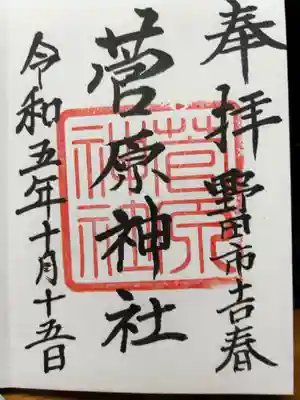 奉拝 野田市吉春
菅原神社
令和五年十月十五日
菅原
神社